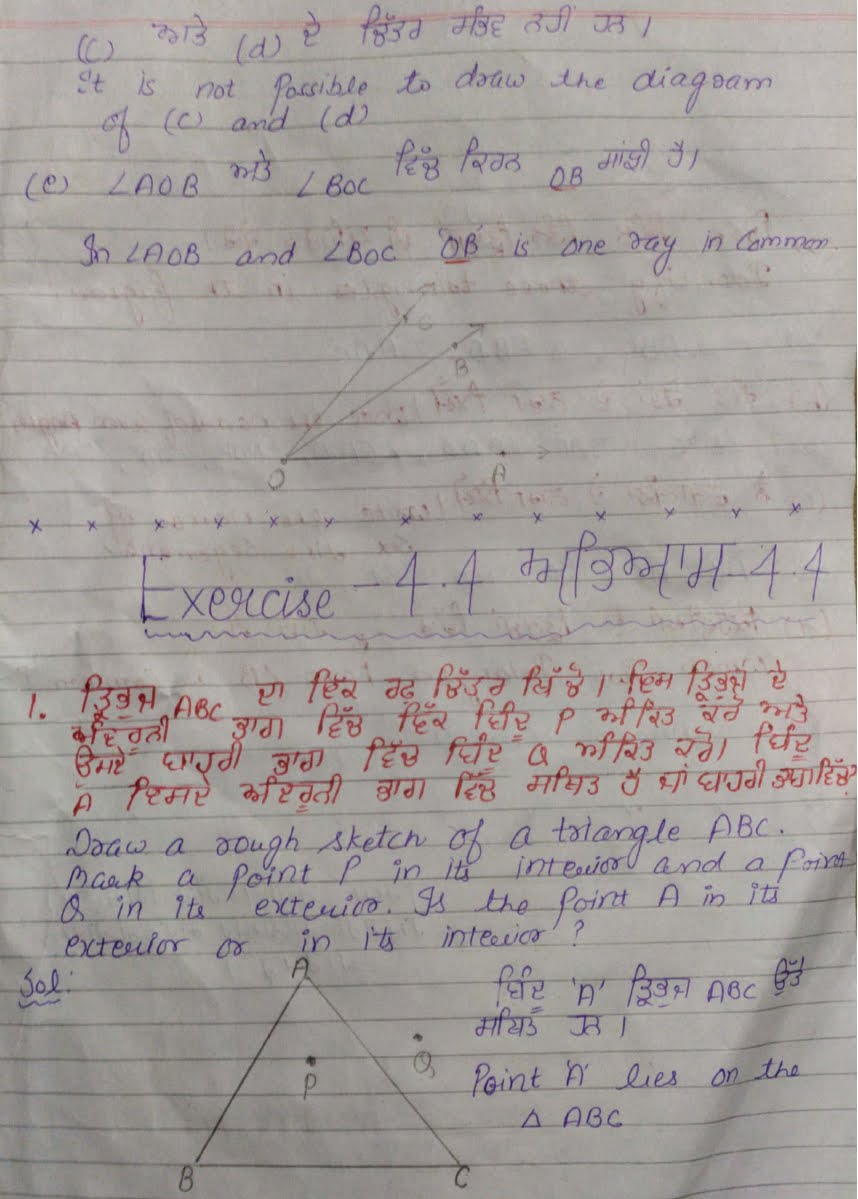 (C) ਅਤੇ (d) ਦੇ ਚਿੱਤਰ ਸੰਭਵ ਨਹੀਂ ਹਨ।
It is not possible to draw the diagram
of (c) and (d)
(e) ∠AOB ਅਤੇ ∠BOC ਵਿੱਚ ਕਿਰਨ OB ਸਾਂਝੀ ਹੈ।
In ∠AOB and ∠BOC 'OB' is one ray in common.
C
B
O
A
x x x x x x x x x x x x x
Exercise - 4.4 ਅਭਿਆਸ 4.4
1. ਤ੍ਰਿਭੁਜ ABC ਦਾ ਇੱਕ ਰਫ਼ ਚਿੱਤਰ ਖਿੱਚੋ। ਇਸ ਤ੍ਰਿਭੁਜ ਦੇ
ਅੰਦਰੂਨੀ ਭਾਗ ਵਿੱਚ ਇੱਕ ਬਿੰਦੂ P ਅੰਕਿਤ ਕਰੋ ਅਤੇ
ਉਸਦੇ ਬਾਹਰੀ ਭਾਗ ਵਿੱਚ ਬਿੰਦੂ Q ਅੰਕਿਤ ਕਰੋ। ਬਿੰਦੂ
A ਇਸਦੇ ਅੰਦਰੂਨੀ ਭਾਗ ਵਿੱਚ ਸਥਿਤ ਹੈ ਜਾਂ ਬਾਹਰੀ ਭਾਗ ਵਿੱਚ?
Draw a rough sketch of a triangle ABC.
Mark a point P in its interior and a point
Q in its exterior. Is the point A in its
exterior or in its interior?
Sol:
A
ਬਿੰਦੂ 'A' ਤ੍ਰਿਭੁਜ ABC ਉੱਤੇ
ਸਥਿਤ ਹਨ।
P
Q
Point 'A' lies on the
Δ ABC
B
C